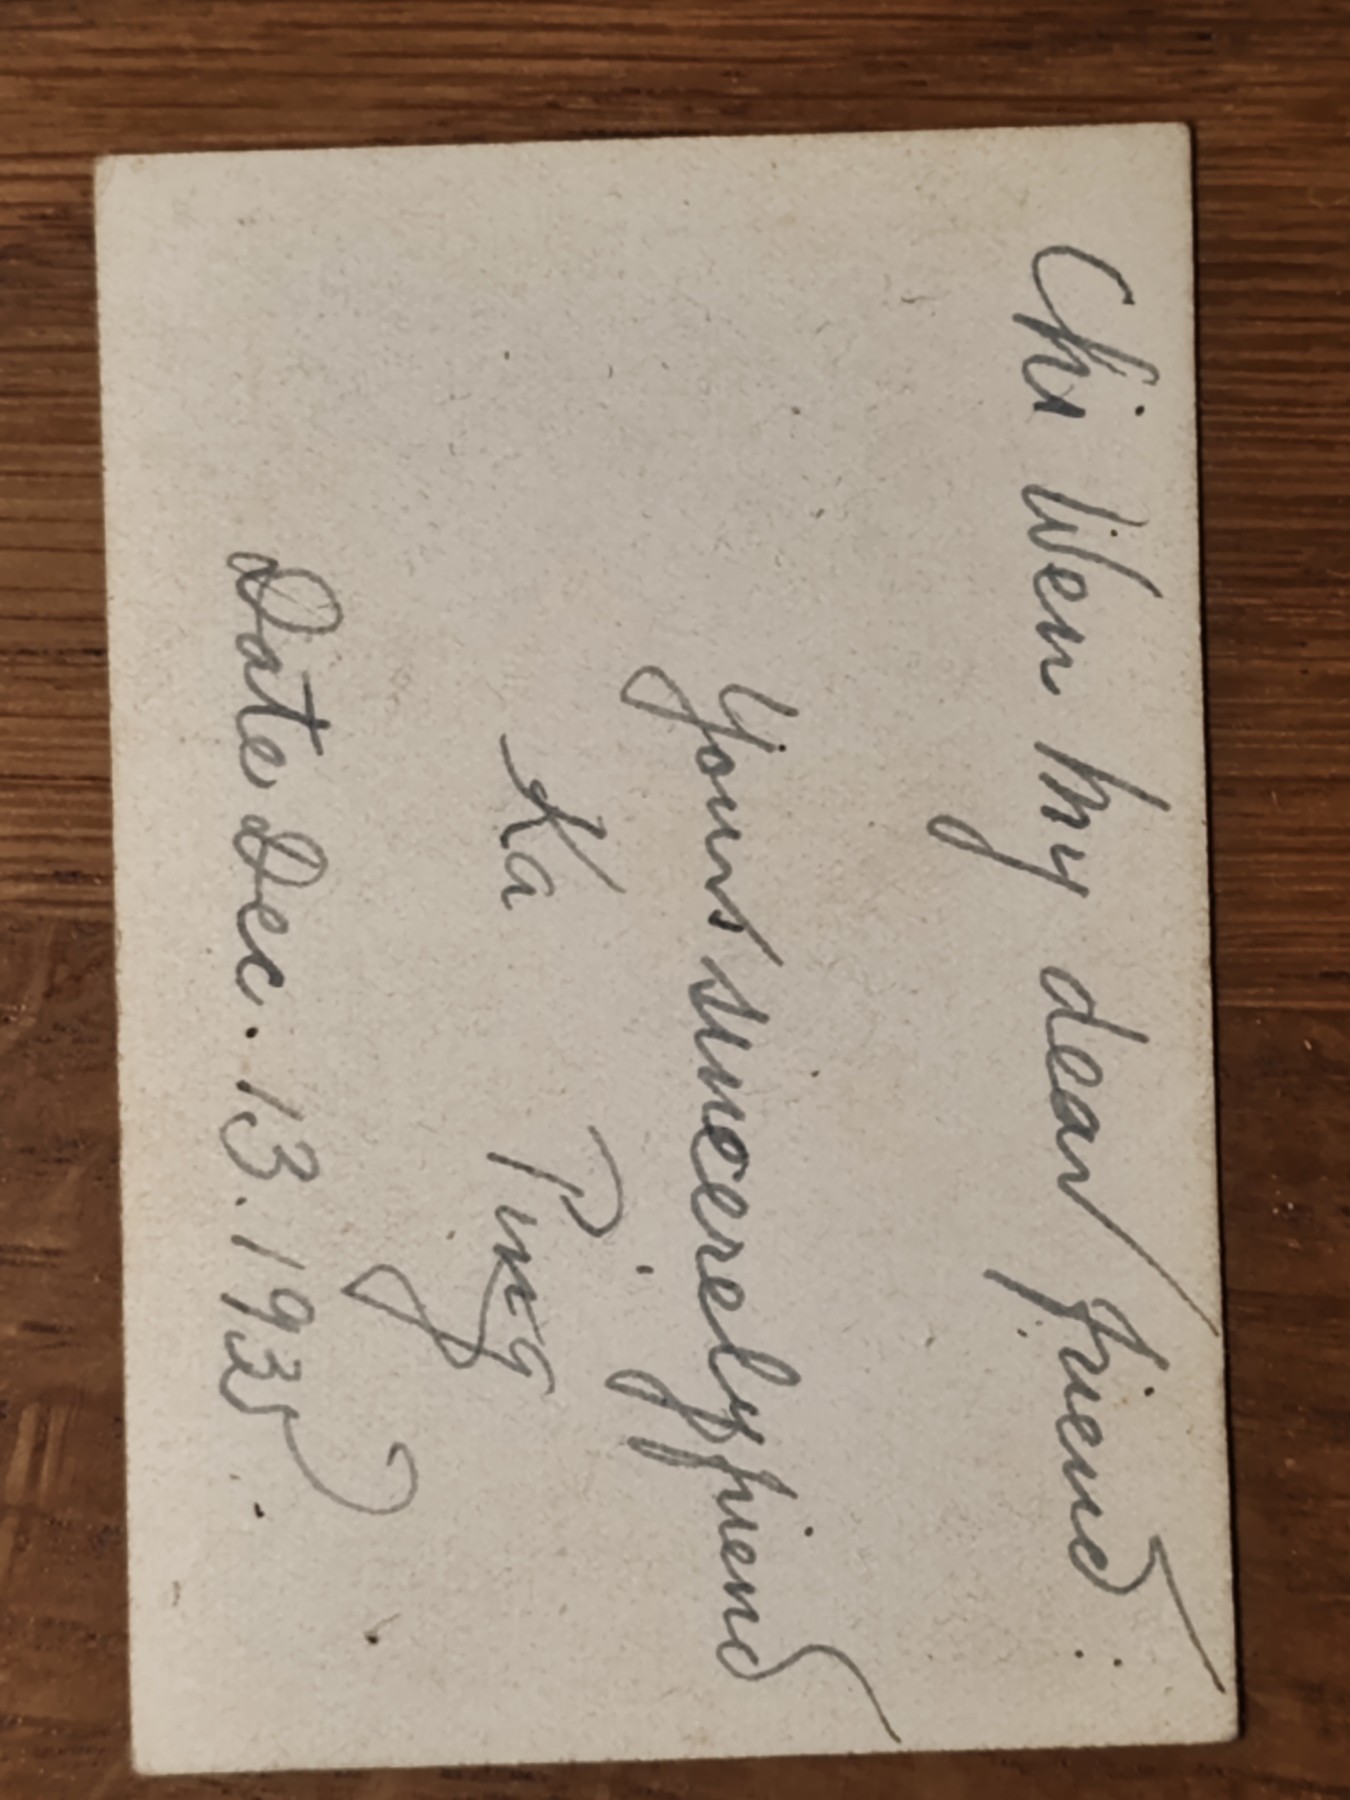 Chi Wen My dear friend:
Yours sincerely friend
Ka Ping
Date Dec. 13. 1935.